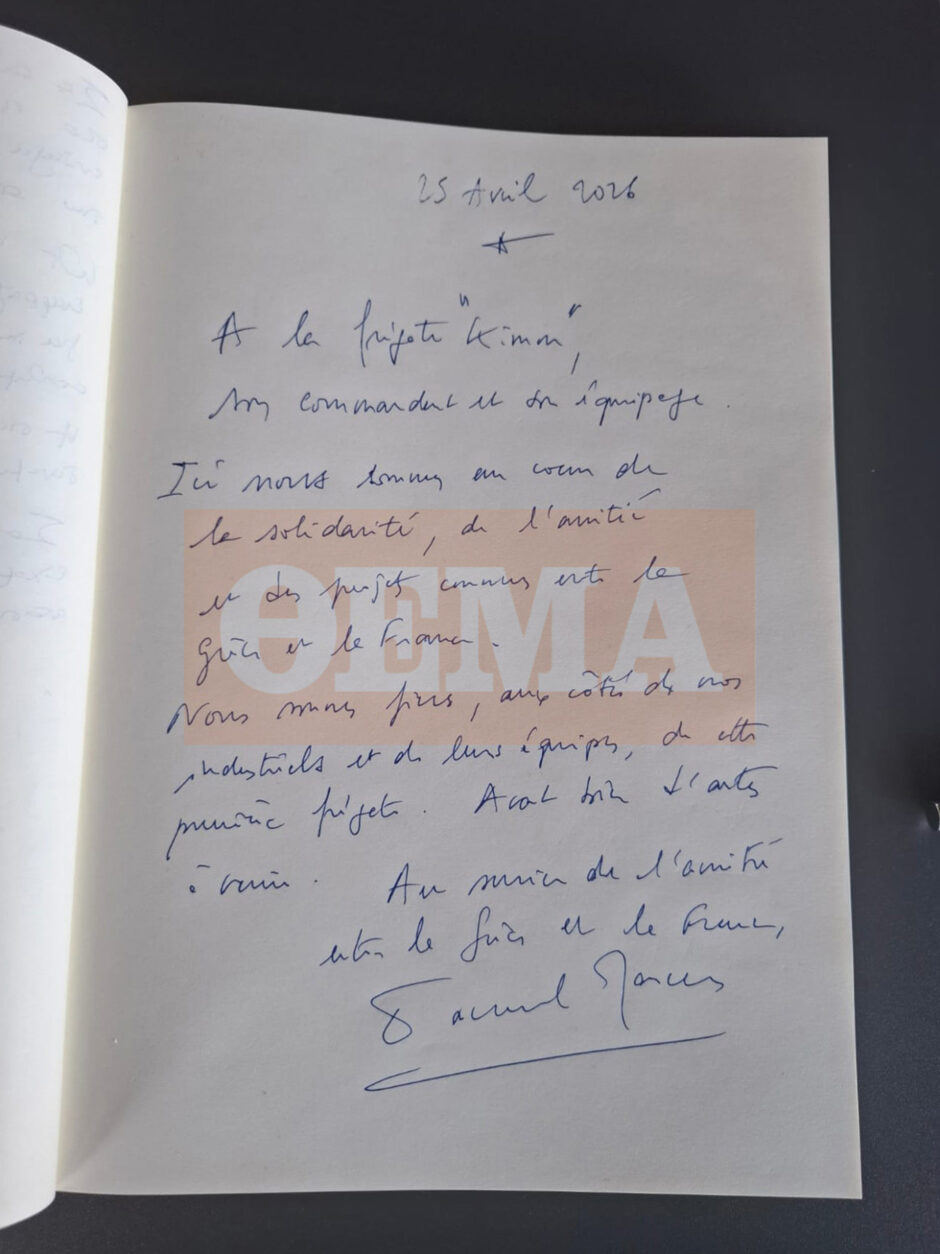 25 Avril 2026
A la frégate "Kimon",
son commandant et son équipage.
Ici nous sommes au cœur de
la solidarité, de l'amitié
et des projets communs entre la
Grèce et la France.
Nous sommes fiers, aux côtés de nos
industriels et de leurs équipes, de cette
première frégate. Avant bien d'autres
à venir. Au service de l'amitié
entre la Grèce et la France,
Emmanuel Macron
ΘΕΜΑ